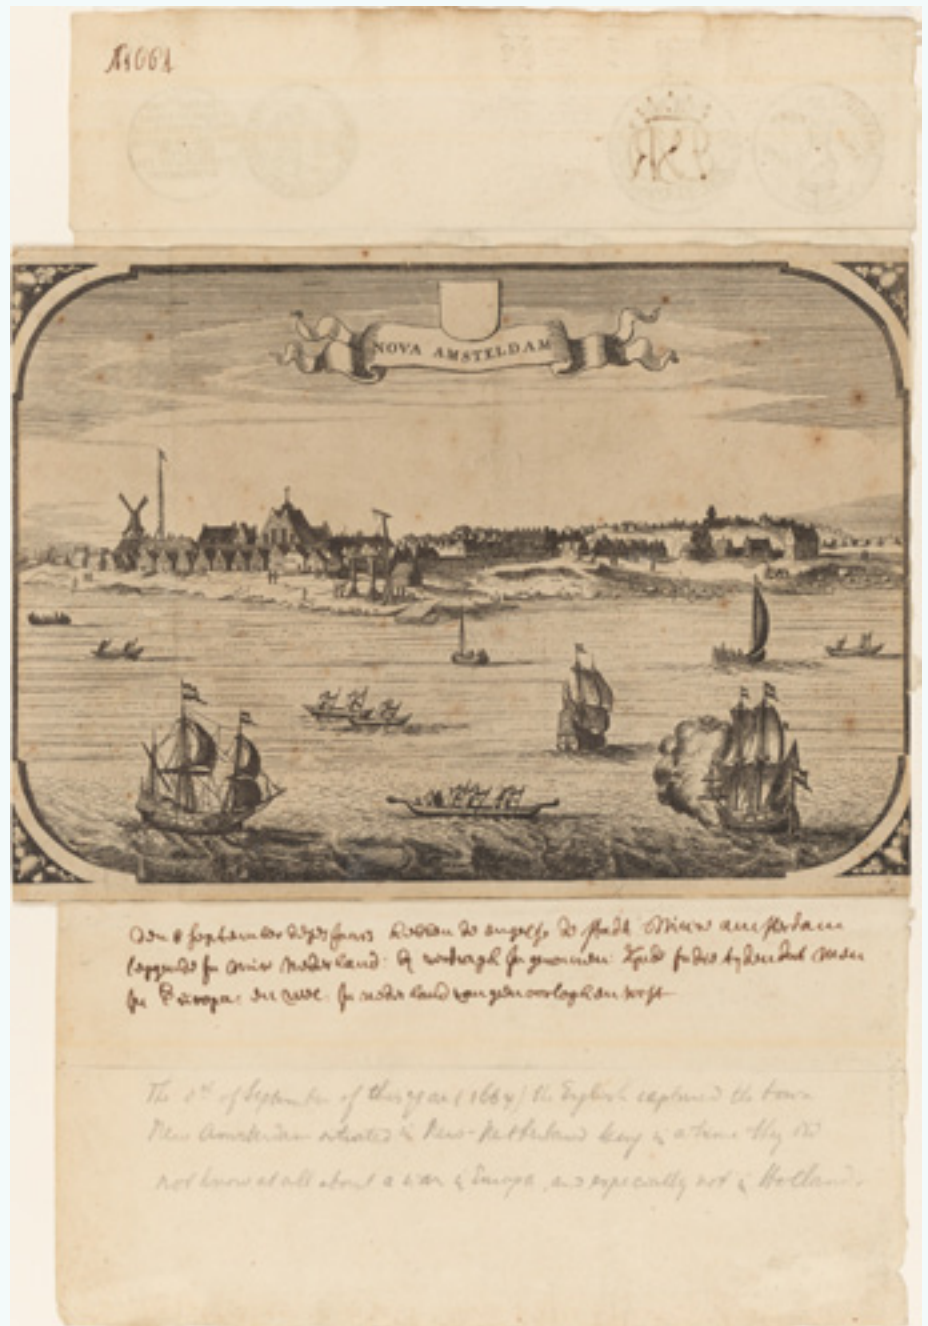 A1664
NOVA AMSTELDAM
Den 8 september deses Jaers hebben de engelse de stadt Nieuw amsterdam
leggende In Nieu Nederland
In Europa en In nederland van gen oorlogh en
The 8th of September of this year (1664) the English captured the town
New Amsterdam situated in New-Netherland in a time they did
not know at all about a war in Europe, and especially not in Holland.